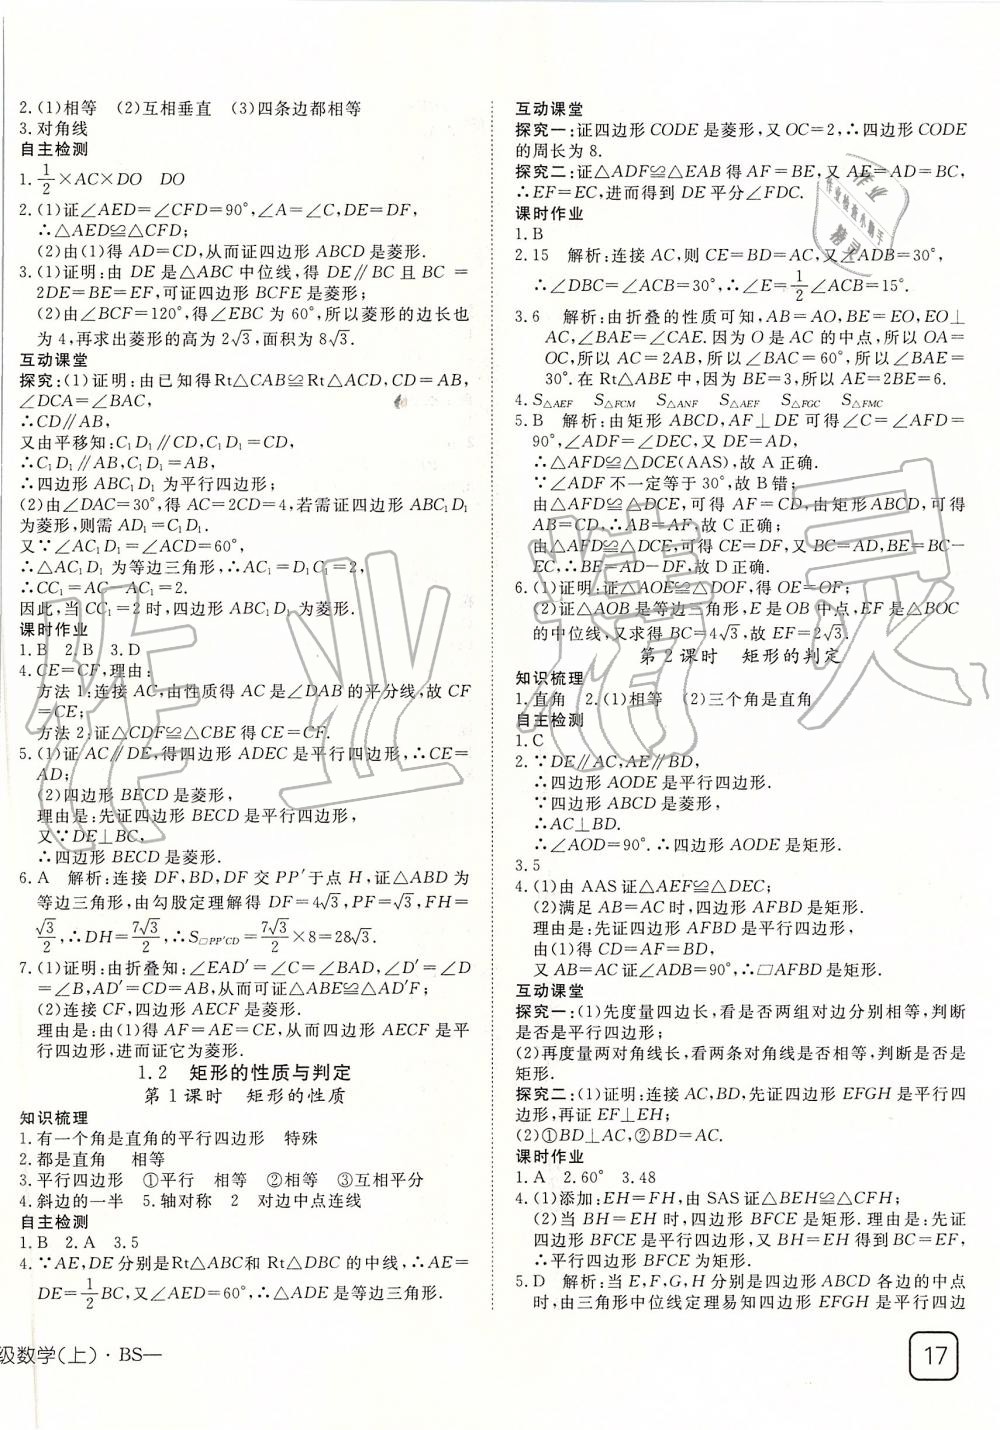 2.(1)相等　(2)互相垂直　(3)四条边都相等
3.对角线
自主检测
1.1/2×AC×DO　DO
2.(1)证∠AED=∠CFD=90°,∠A=∠C,DE=DF,
∴△AED≌△CFD;
(2)由(1)得 AD=CD,从而证四边形 ABCD 是菱形.
3.(1)证明:由 DE 是△ABC 中位线,得 DE∥BC 且 BC=
2DE=BE=EF,可证四边形 BCFE 是菱形;
(2)由∠BCF=120°,得∠EBC 为 60°,所以菱形的边长也
为 4,再求出菱形的高为 2√3,面积为 8√3.
互动课堂
探究:(1)证明:由已知得Rt△CAB≌Rt△ACD,CD=AB,
∠DCA=∠BAC,
∴CD∥AB,
又由平移知:C₁D₁∥CD,C₁D₁=CD,
∴C₁D₁∥AB,C₁D₁=AB,
∴四边形 ABC₁D₁ 为平行四边形;
(2)由∠DAC=30°,得 AC=2CD=4,若需证四边形 ABC₁D₁
为菱形,则需 AD₁=C₁D₁.
又∵∠AC₁D₁=∠ACD=60°,
∴△AC₁D₁ 为等边三角形,∴AC₁=C₁D₁=2,
∴CC₁=AC-AC₁=2.
因此,当 CC₁=2 时,四边形 ABC₁D₁ 为菱形.
课时作业
1.B　2.B　3.D
4.CE=CF,理由:
方法 1:连接 AC,由性质得 AC 是∠DAB 的平分线,故 CF
=CE;
方法 2:证△CDF≌△CBE 得 CE=CF.
5.(1)证 AC∥DE,得四边形 ADEC 是平行四边形,∴CE=
AD;
(2)四边形 BECD 是菱形,
理由是:先证四边形 BECD 是平行四边形,
又∵DE⊥BC,
∴四边形 BECD 是菱形.
6.A　解析:连接 DF,BD,DF 交 PP′于点 H,证△ABD 为
等边三角形,由勾股定理解得 DF=4√3,PF=√3,FH=
√3/2,∴DH=7√3/2,∴S□PP′CD=7√3/2×8=28√3.
7.(1)证明:由折叠知:∠EAD′=∠C=∠BAD,∠D′=∠D
=∠B,AD′=CD=AB,从而可证△ABE≌△AD′F;
(2)连接 CF,四边形 AECF 是菱形.
理由是:由(1)得 AF=AE=CE,从而四边形 AECF 是平
行四边形,进而证它为菱形.
1.2　矩形的性质与判定
第 1 课时　矩形的性质
知识梳理
1.有一个角是直角的平行四边形　特殊
2.都是直角　相等
3.平行四边形　①平行　相等　②相等　③互相平分
4.斜边的一半　5.轴对称　2　对边中点连线
自主检测
1.B　2.A　3.5
4.∵AE,DE分别是Rt△ABC和Rt△DBC的中线,∴AE=
DE=1/2BC,又∠AED=60°,∴△ADE是等边三角形.
级数学(上)·BS—
互动课堂
探究一:证四边形 CODE 是菱形,又 OC=2,∴四边形 CODE
的周长为 8.
探究二:证△ADF≌△EAB 得 AF=BE,又 AE=AD=BC,
∴EF=EC,进而得到 DE 平分∠FDC.
课时作业
1.B
2.15　解析:连接 AC,则 CE=BD=AC,又∠ADB=30°,
∴∠DBC=∠ACB=30°,∴∠E=1/2∠ACB=15°.
3.6　解析:由折叠的性质可知,AB=AO,BE=EO,EO⊥
AC,∠BAE=∠CAE.因为 O 是 AC 的中点,所以 OA=
OC,所以 AC=2AB,所以∠BAC=60°,所以∠BAE=
30°.在 Rt△ABE 中,因为 BE=3,所以 AE=2BE=6.
4.S△AEF　S△FCM　S△ANF　S△AEF　S△FGC　S△FMC
5.B　解析:由矩形 ABCD,AF⊥DE 可得∠C=∠AFD=
90°,∠ADF=∠DEC,又 DE=AD,
∴△AFD≌△DCE(AAS),故 A 正确.
∵∠ADF 不一定等于 30°,故 B 错;
由△AFD≌△DCE,可得 AF=CD,由矩形ABCD,可得
AB=CD,∴AB=AF,故 C 正确;
由△AFD≌△DCE,可得 CE=DF,又 BC=AD,BE=BC-
EC,∴BE=AD-DF,故 D 正确.
6.(1)证明:证△AOE≌△DOF,得 OE=OF;
(2)证△AOB 是等边三角形,E 是 OB 中点,EF 是△BOC
的中位线,又求得 BC=4√3,故 EF=2√3.
第 2 课时　矩形的判定
知识梳理
1.直角　2.(1)相等　(2)三个角是直角
自主检测
1.C
2.∵DE∥AC,AE∥BD,
∴四边形 AODE 是平行四边形.
∵四边形 ABCD 是菱形,
∴AC⊥BD.
∴∠AOD=90°.∴四边形 AODE 是矩形.
3.5
4.(1)由 AAS 证△AEF≌△DEC;
(2)满足 AB=AC 时,四边形 AFBD 是矩形.
理由是:先证四边形 AFBD 是平行四边形,
由(1)得 CD=AF=BD,
又 AB=AC 证∠ADB=90°,∴□AFBD 是矩形.
互动课堂
探究一:(1)先度量四边长,看是否两组对边分别相等,判断
是否是平行四边形;
(2)再度量两对角线长,看两条对角线是否相等,判断是否是
矩形.
探究二:(1)证明:连接 AC,BD,先证四边形 EFGH 是平行四
边形,再证 EF⊥EH;
(2)①BD⊥AC,②BD=AC.
课时作业
1.A　2.60°　3.48
4.(1)添加:EH=FH,由 SAS证△BEH≌△CFH;
(2)当 BH=EH 时,四边形 BFCE 是矩形.理由是:先证
四边形 BFCE 是平行四边形,又由 BH=EH 得到 BC=EF,
∴平行四边形 BFCE 为矩形.
5.D　解析:当 E,F,G,H 分别是四边形 ABCD 各边的中点
时,由三角形中位线定理易知四边形 EFGH 是平行四边
17
作业精灵